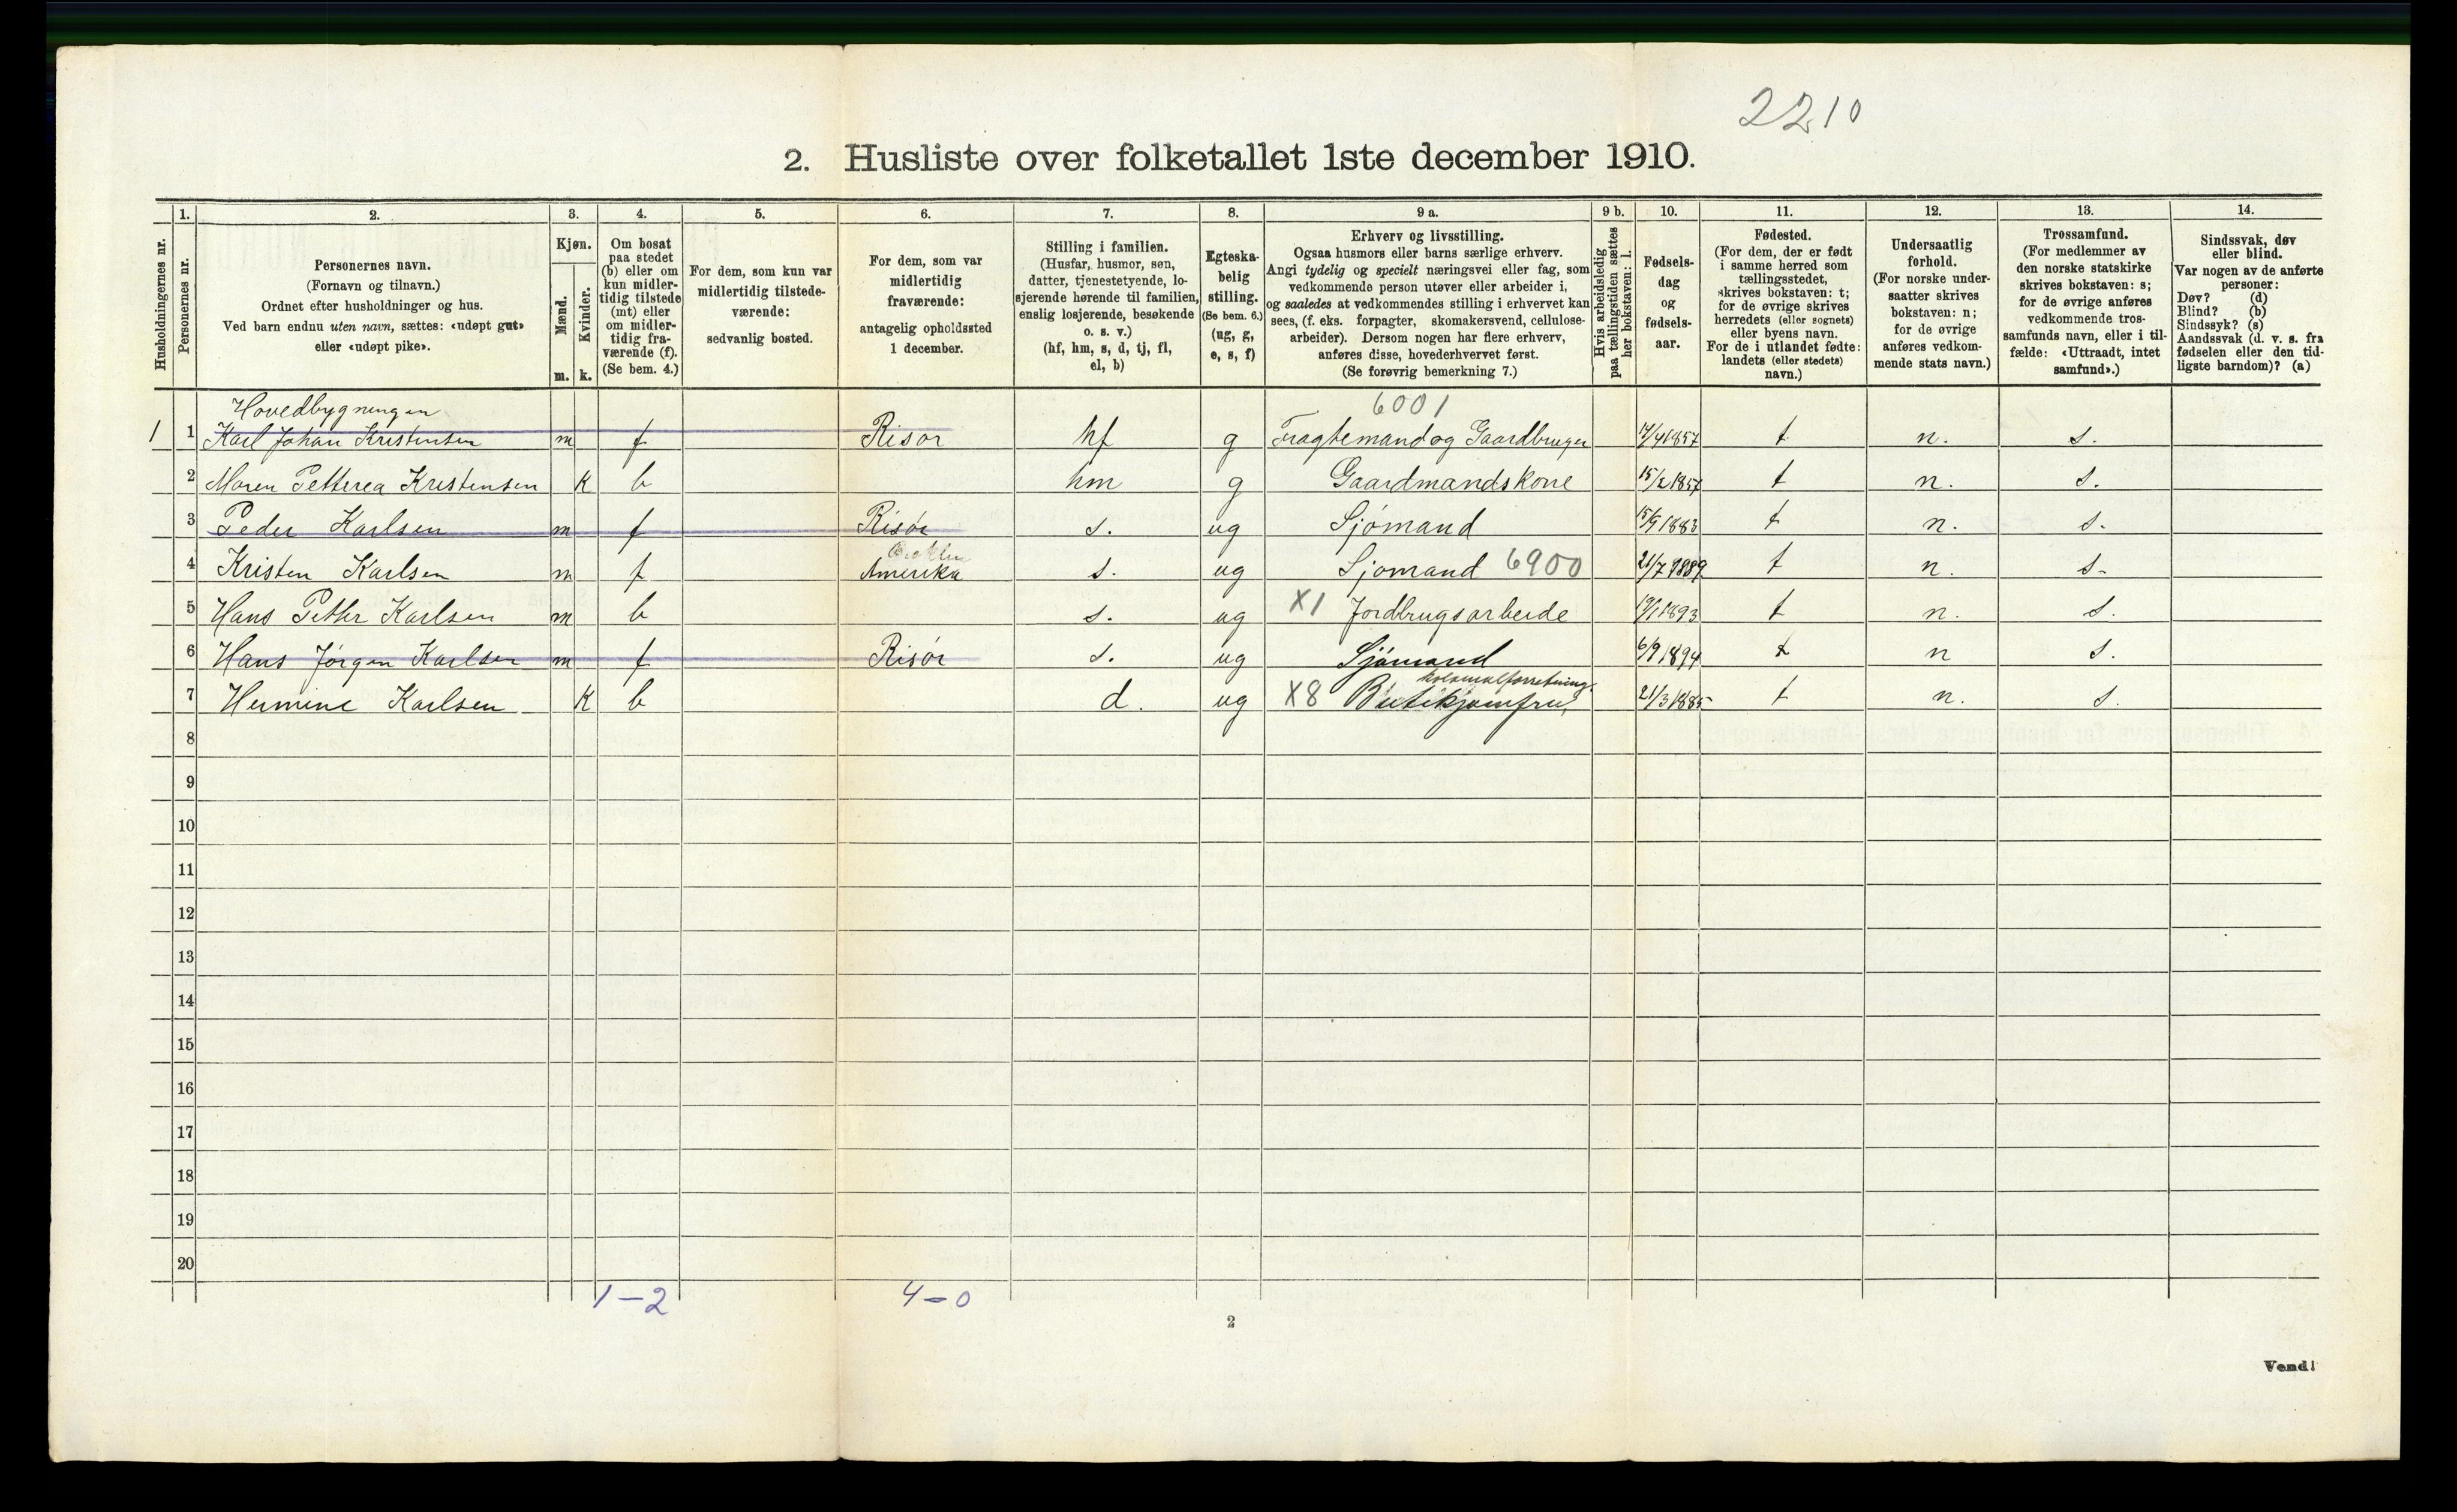 2210
2. Husliste over folketallet 1ste december 1910.
Husholdningernes nr.
1.
Personernes nr.
2.
Personernes navn.
(Fornavn og tilnavn.)
Ordnet efter husholdninger og hus.
Ved barn endnu uten navn, sættes: «udøpt gut»
eller «udøpt pike».
3.
Kjøn.
Mænd.
Kvinder.
m. k.
4.
Om bosat
paa stedet
(b) eller om
kun midler-
tidig tilstede
(mt) eller
om midler-
tidig fra-
værende (f).
(Se bem. 4.)
5.
For dem, som kun var
midlertidig tilstede-
værende:
sedvanlig bosted.
6.
For dem, som var
midlertidig
fraværende:
antagelig opholdssted
1 december.
7.
Stilling i familien.
(Husfar, husmor, søn,
datter, tjenestetyende, lo-
sjerende hørende til familien,
enslig losjerende, besøkende
o. s. v.)
(hf, hm, s, d, tj, fl,
el, b)
8.
Egteska-
belig
stilling.
(Se bem. 6.)
(ug, g,
e, s, f)
9 a.
Erhverv og livsstilling.
Ogsaa husmors eller barns særlige erhverv.
Angi tydelig og specielt næringsvei eller fag, som
vedkommende person utøver eller arbeider i,
og saaledes at vedkommendes stilling i erhvervet kan
sees, (f. eks. forpagter, skomakersvend, cellulose-
arbeider). Dersom nogen har flere erhverv,
anføres disse, hovederhvervet først.
(Se forøvrig bemerkning 7.)
9 b.
Hvis arbeidsledig
paa tællingstiden sættes
her bokstaven: l.
10.
Fødsels-
dag
og
fødsels-
aar.
11.
Fødested.
(For dem, der er født
i samme herred som
tællingsstedet,
skrives bokstaven: t;
for de øvrige skrives
herredets (eller sognets)
eller byens navn.
For de i utlandet fødte:
landets (eller stedets)
navn.)
12.
Undersaatlig
forhold.
(For norske under-
saatter skrives
bokstaven: n;
for de øvrige
anføres vedkom-
mende stats navn.)
13.
Trossamfund.
(For medlemmer av
den norske statskirke
skrives bokstaven: s;
for de øvrige anføres
vedkommende tros-
samfunds navn, eller i til-
fælde: «Uttraadt, intet
samfund».)
14.
Sindssvak, døv
eller blind.
Var nogen av de anførte
personer:
Døv? (d)
Blind? (b)
Sindssyk? (s)
Aandssvak (d. v. s. fra
fødselen eller den tid-
ligste barndom)? (a)
Hovedbygningen
6001
1 1 Karl Johan Kristensen m f Risør hf g Fragtemand og Gaardbruger 17/4 1857 t n. s.
2 Maren Petterea Kristensen k b hm g Gaardmandskone 15/2 1857 t n. s.
3 Peder Karlsen m f Risør s. ug Sjömand 15/9 1883 t n. s.
4 Kristen Karlsen m f Amerika s. ug Sjomand 6900 21/7 1889 t n. s.
5 Hans Petter Karlsen m b s. ug X1 Jordbrugsarbeide 1893 t n. s.
6 Hans Jörgen Karlsen m f Risör s. ug Sjömand 6/9 1894 t n s.
kolonialforretning.
7 Hermine Karlsen k b d. ug X8 Butikjomfru, 21/3 1885 t n. s.
8
9
10
11
12
13
14
15
16
17
18
19
20
1-2 4-0
2
Vend!